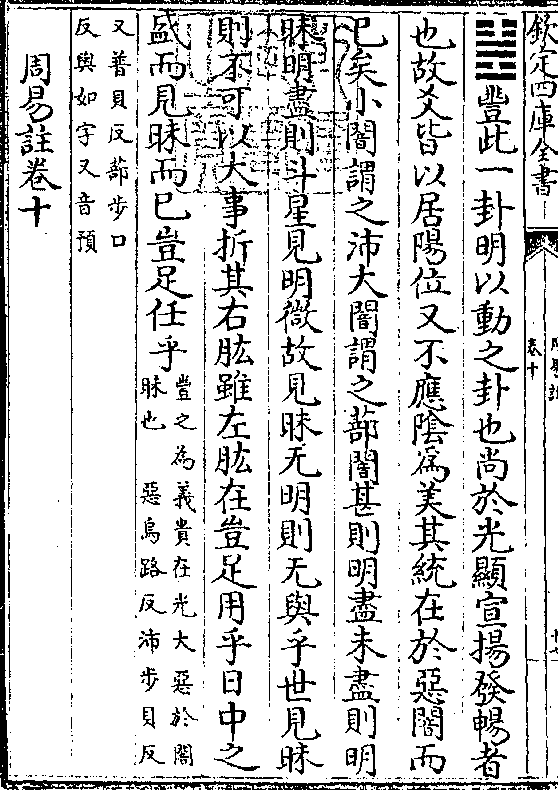 欽定四庫全書
卷十
䷶豐此一卦明以動之卦也尚於光顯宣揚發暢者
也故爻皆以居陽位又不應陰為美其統在於惡闇而
已矣小闇謂之沛大闇謂之蔀闇甚則明盡未盡則明
昧明盡則斗星見明微故見昧无明則无與乎世見昧
則不可以大事折其右肱雖左肱在豈足用乎日中之
盛而見昧而已豈足任乎
豐之為義貴在光大惡於闇
昧也 惡烏路反沛步貝反
又普貝反蔀步口
反與如字又音預
周易註卷十